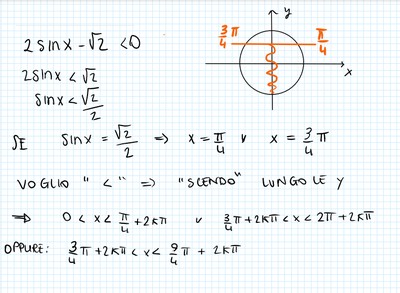 2 sin x - √2 < 0
3/4 π
y
π/4
x
2 sin x < √2
sin x < √2/2
SE sin x = √2/2 => x = π/4 v x = 3/4 π
VOGLIO " < " => "SCENDO" LUNGO LE Y
=> 0 < x < π/4 + 2kπ v 3/4 π + 2kπ < x < 2π + 2kπ
OPPURE: 3/4 π + 2kπ < x < 9/4 π + 2kπ